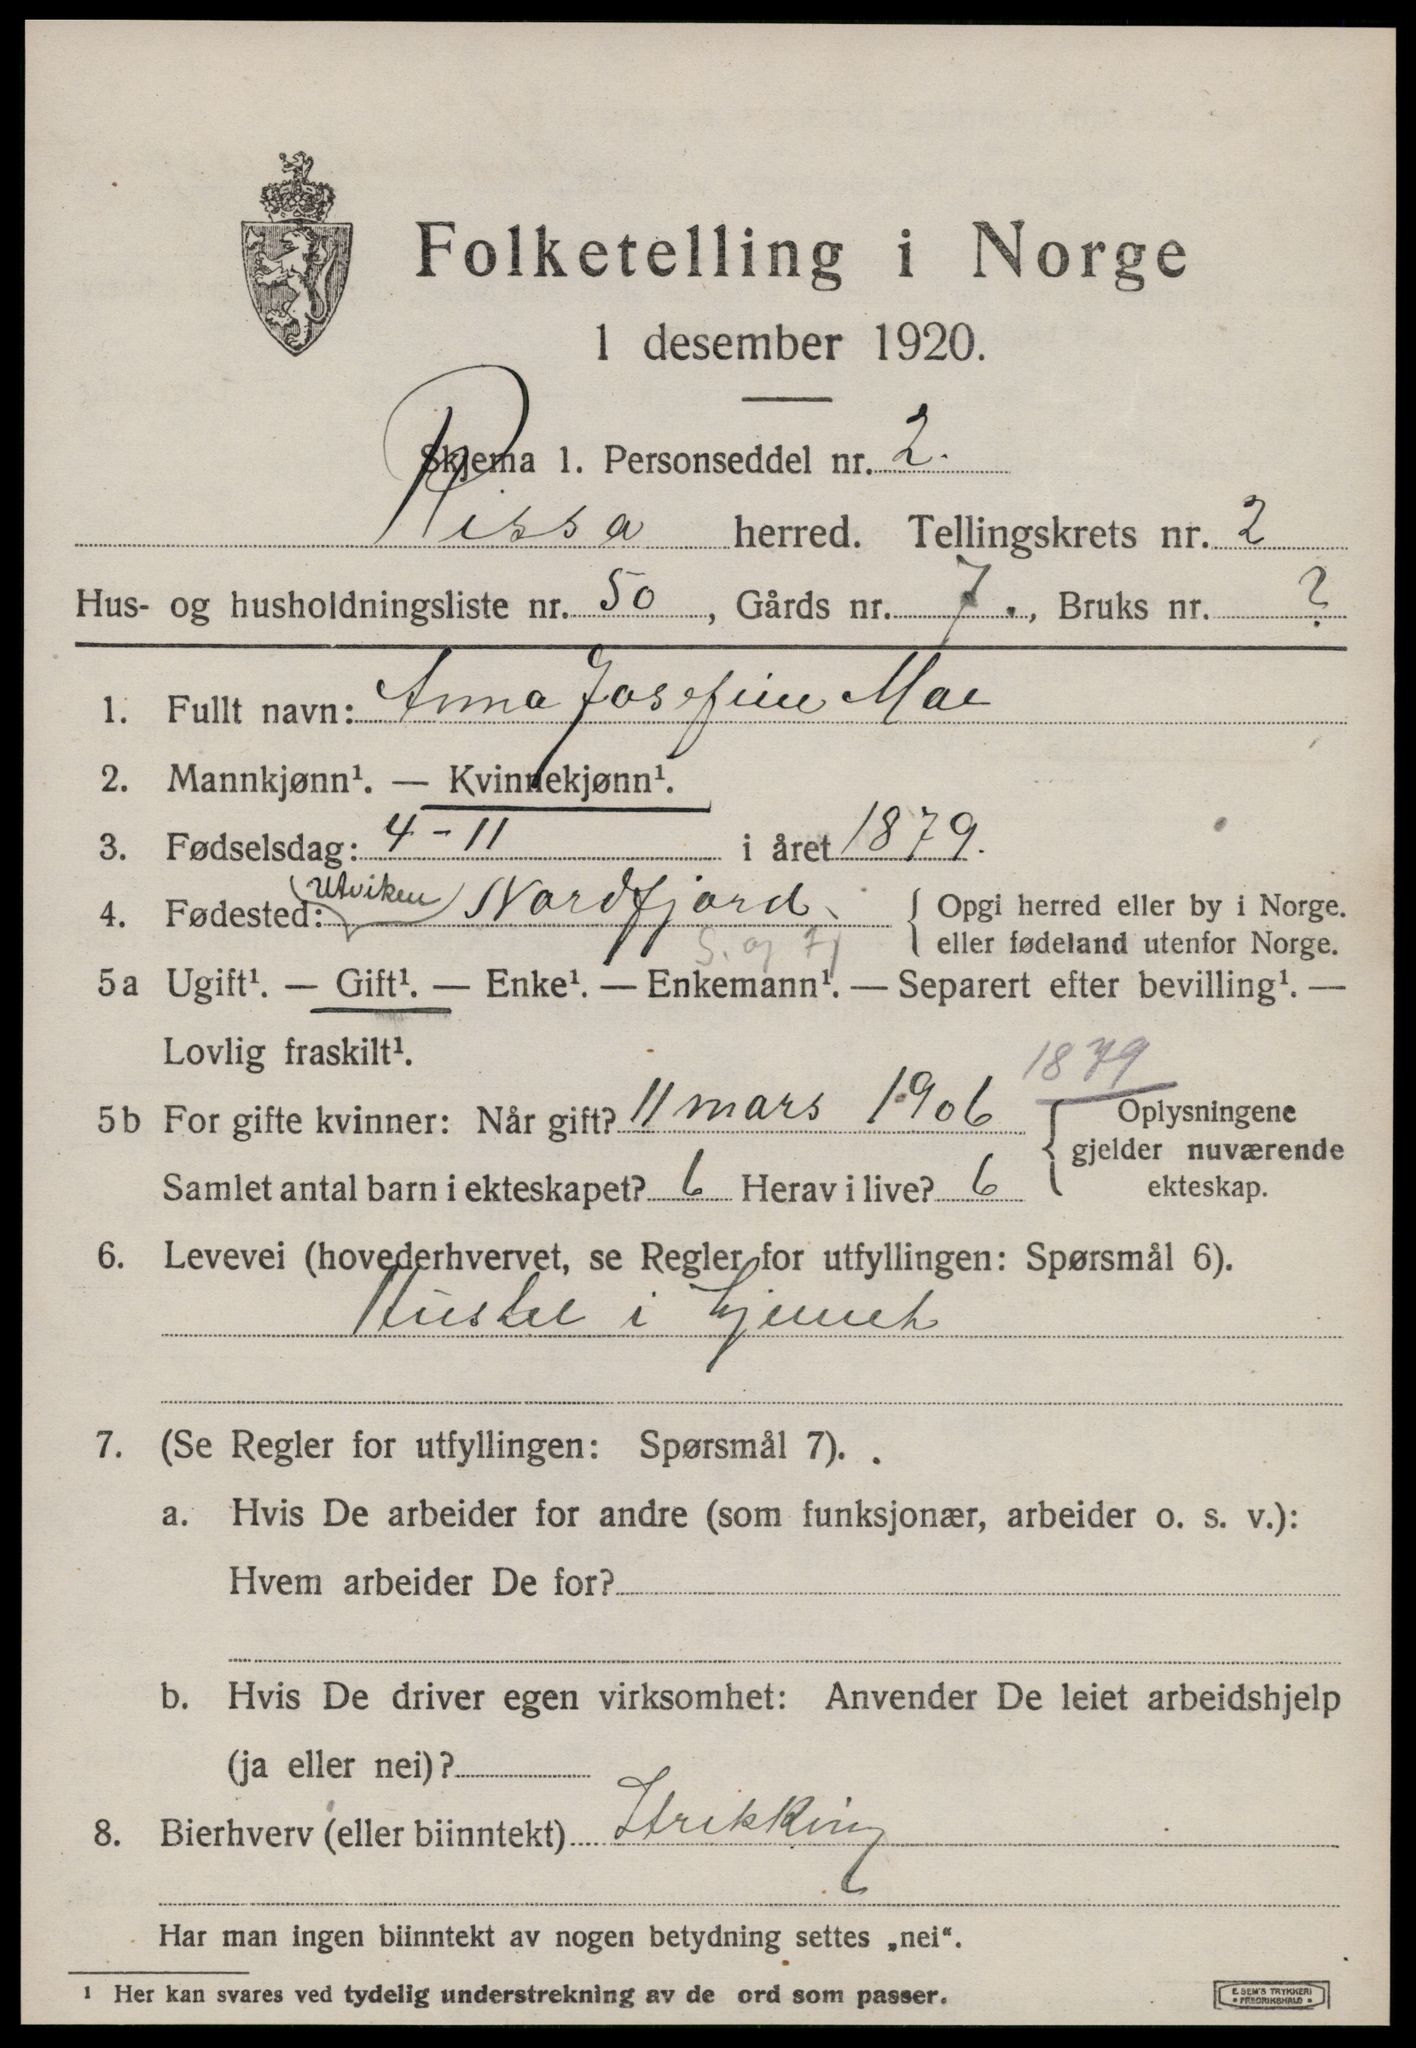 Folketelling i Norge
1 desember 1920.
Skjema 1. Personseddel nr. 2.
Rissa herred. Tellingskrets nr. 2
Hus- og husholdningsliste nr. 50, Gårds nr. 7., Bruks nr. ?
1. Fullt navn: Anna Josefine Moe
2. Mannkjønn¹. — Kvinnekjønn¹.
3. Fødselsdag: 4-11 i året 1879.
4. Fødested: (Utviken) Nordfjord { Opgi herred eller by i Norge.
eller fødeland utenfor Norge.
S. og Fj
5a Ugift¹. — Gift¹. — Enke¹. — Enkemann¹. — Separert efter bevilling¹. —
Lovlig fraskilt¹.
1879
5b For gifte kvinner: Når gift? 11 mars 1906 { Oplysningene
gjelder nuværende
Samlet antal barn i ekteskapet? 6 Herav i live? 6 ekteskap.
6. Levevei (hovederhvervet, se Regler for utfyllingen: Spørsmål 6).
i hjemmet
7. (Se Regler for utfyllingen: Spørsmål 7).
a. Hvis De arbeider for andre (som funksjonær, arbeider o. s. v.):
Hvem arbeider De for?
b. Hvis De driver egen virksomhet: Anvender De leiet arbeidshjelp
(ja eller nei)?
8. Bierhverv (eller biinntekt) Strikking
Har man ingen biinntekt av nogen betydning settes „nei“.
¹ Her kan svares ved tydelig understrekning av de ord som passer.
E. SEM'S TRYKKERI
• FREDRIKSHALD •